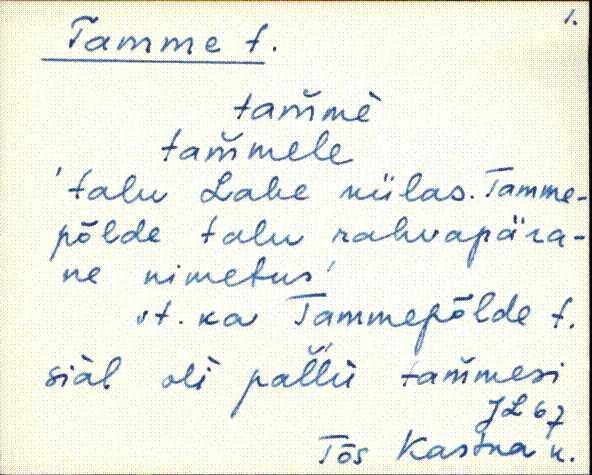 1.
Tamme t.
tam̆mè
tam̆mele
'talu Lahe külas. Tamme-
põlde talu rahvapära-
ne nimetus'
vt. ka Tammepõlde t.
siàl oli pal̆l̆ù tam̆mesi
JL 67
Tõs Kastna k.